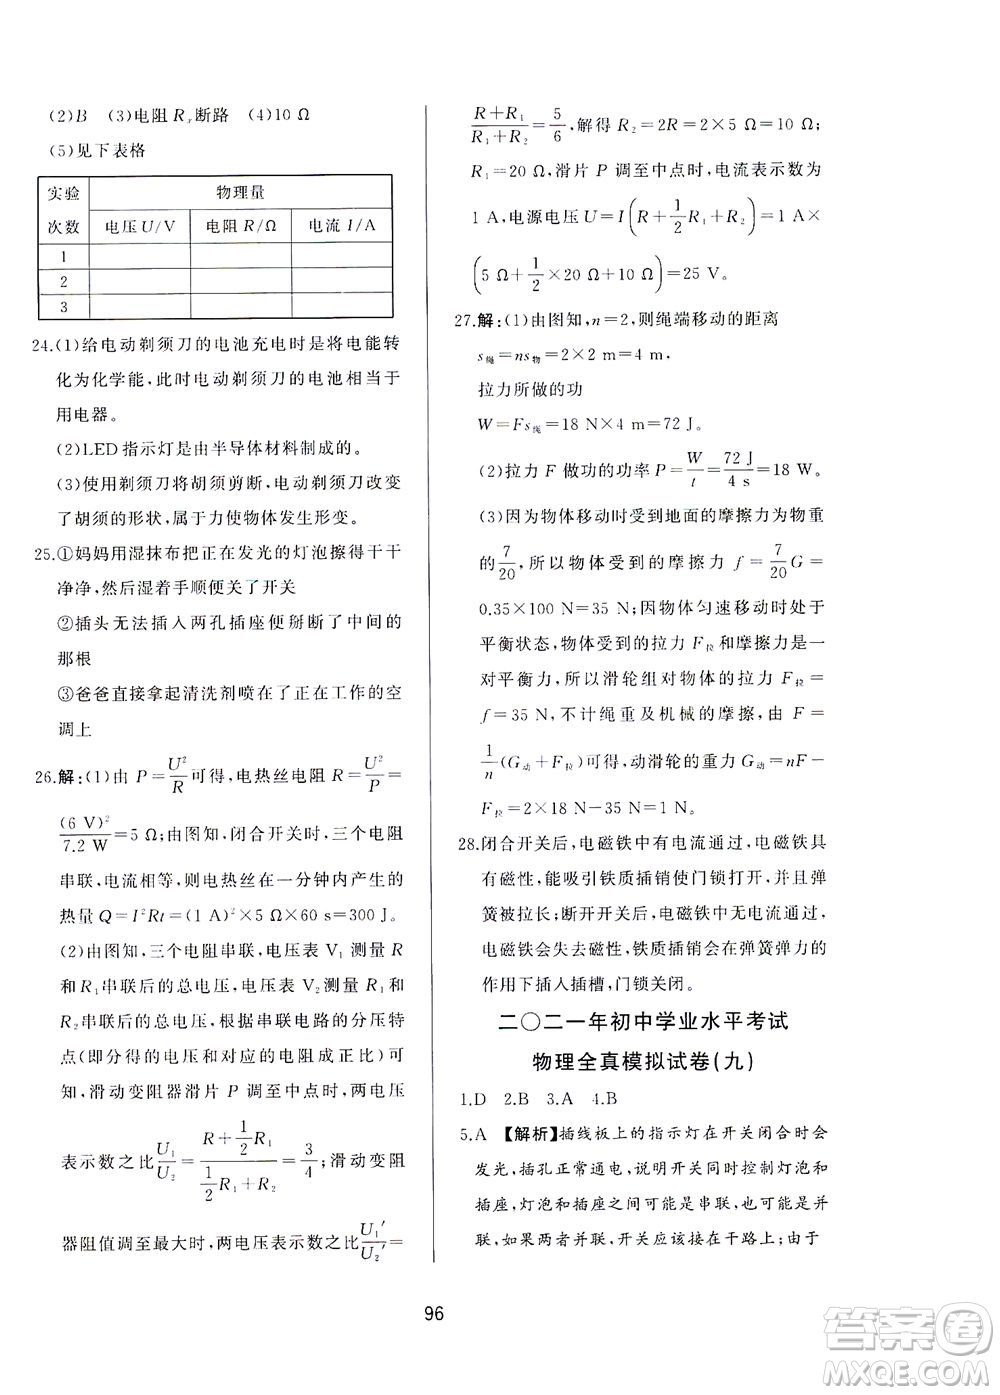 (2)B (3)电阻 Rₓ断路 (4)10 Ω
(5)见下表格
实验次数 物理量
电压 U/V 电阻 R/Ω 电流 I/A
1
2
3
24.(1)给电动剃须刀的电池充电时是将电能转
化为化学能，此时电动剃须刀的电池相当于
用电器。
(2)LED 指示灯是由半导体材料制成的。
(3)使用剃须刀将胡须剪断，电动剃须刀改变
了胡须的形状，属于力使物体发生形变。
25.①妈妈用湿抹布把正在发光的灯泡擦得干干
净净，然后湿着手顺便关了开关
②插头无法插入两孔插座便掰断了中间的
那根
③爸爸直接拿起清洗剂喷在了正在工作的空
调上
26.解:(1)由 P=U²/R可得，电热丝电阻 R=U²/P=
(6 V)²/7.2 W=5 Ω;由图知，闭合开关时，三个电阻
串联，电流相等，则电热丝在一分钟内产生的
热量 Q=I²Rt=(1 A)²×5 Ω×60 s=300 J。
(2)由图知，三个电阻串联，电压表 V₁ 测量 R
和 R₁串联后的总电压，电压表 V₂ 测量 R₁和
R₂串联后的总电压，根据串联电路的分压特
点(即分得的电压和对应的电阻成正比)可
知，滑动变阻器滑片 P 调至中点时，两电压
表示数之比U₁/U₂=(R+1/2R₁)/(1/2R₁+R₂)=3/4;滑动变阻
器阻值调至最大时，两电压表示数之比U₁′/U₂′=
(R+R₁)/(R₁+R₂)=5/6，解得 R₂=2R=2×5 Ω=10 Ω;
R₁=20 Ω，滑片 P 调至中点时，电流表示数为
1 A，电源电压 U=I(R+1/2R₁+R₂)=1 A×
(5 Ω+1/2×20 Ω+10 Ω)=25 V。
27.解:(1)由图知，n=2，则绳端移动的距离
s绳=ns物=2×2 m=4 m，
拉力所做的功
W=Fs绳=18 N×4 m=72 J。
(2)拉力 F 做功的功率 P=W/t=72 J/4 s=18 W。
(3)因为物体移动时受到地面的摩擦力为物重
的7/20，所以物体受到的摩擦力 f=7/20G=
0.35×100 N=35 N;因物体匀速移动时处于
平衡状态，物体受到的拉力 F拉和摩擦力是一
对平衡力，所以滑轮组对物体的拉力 F拉=
f=35 N，不计绳重及机械的摩擦，由 F=
1/n(G动+F拉)可得，动滑轮的重力G动=nF-
F拉=2×18 N-35 N=1 N。
28.闭合开关后，电磁铁中有电流通过，电磁铁具
有磁性，能吸引铁质插销使门锁打开，并且弹
簧被拉长;断开开关后，电磁铁中无电流通过，
电磁铁会失去磁性，铁质插销会在弹簧弹力的
作用下插入插槽，门锁关闭。
二〇二一年初中学业水平考试
物理全真模拟试卷(九)
1.D 2.B 3.A 4.B
5.A 【解析】插线板上的指示灯在开关闭合时会
发光，插孔正常通电，说明开关同时控制灯泡和
插座，灯泡和插座之间可能是串联，也可能是并
联，如果两者并联，开关应该接在干路上;由于
96
答案圈
MXQE.COM